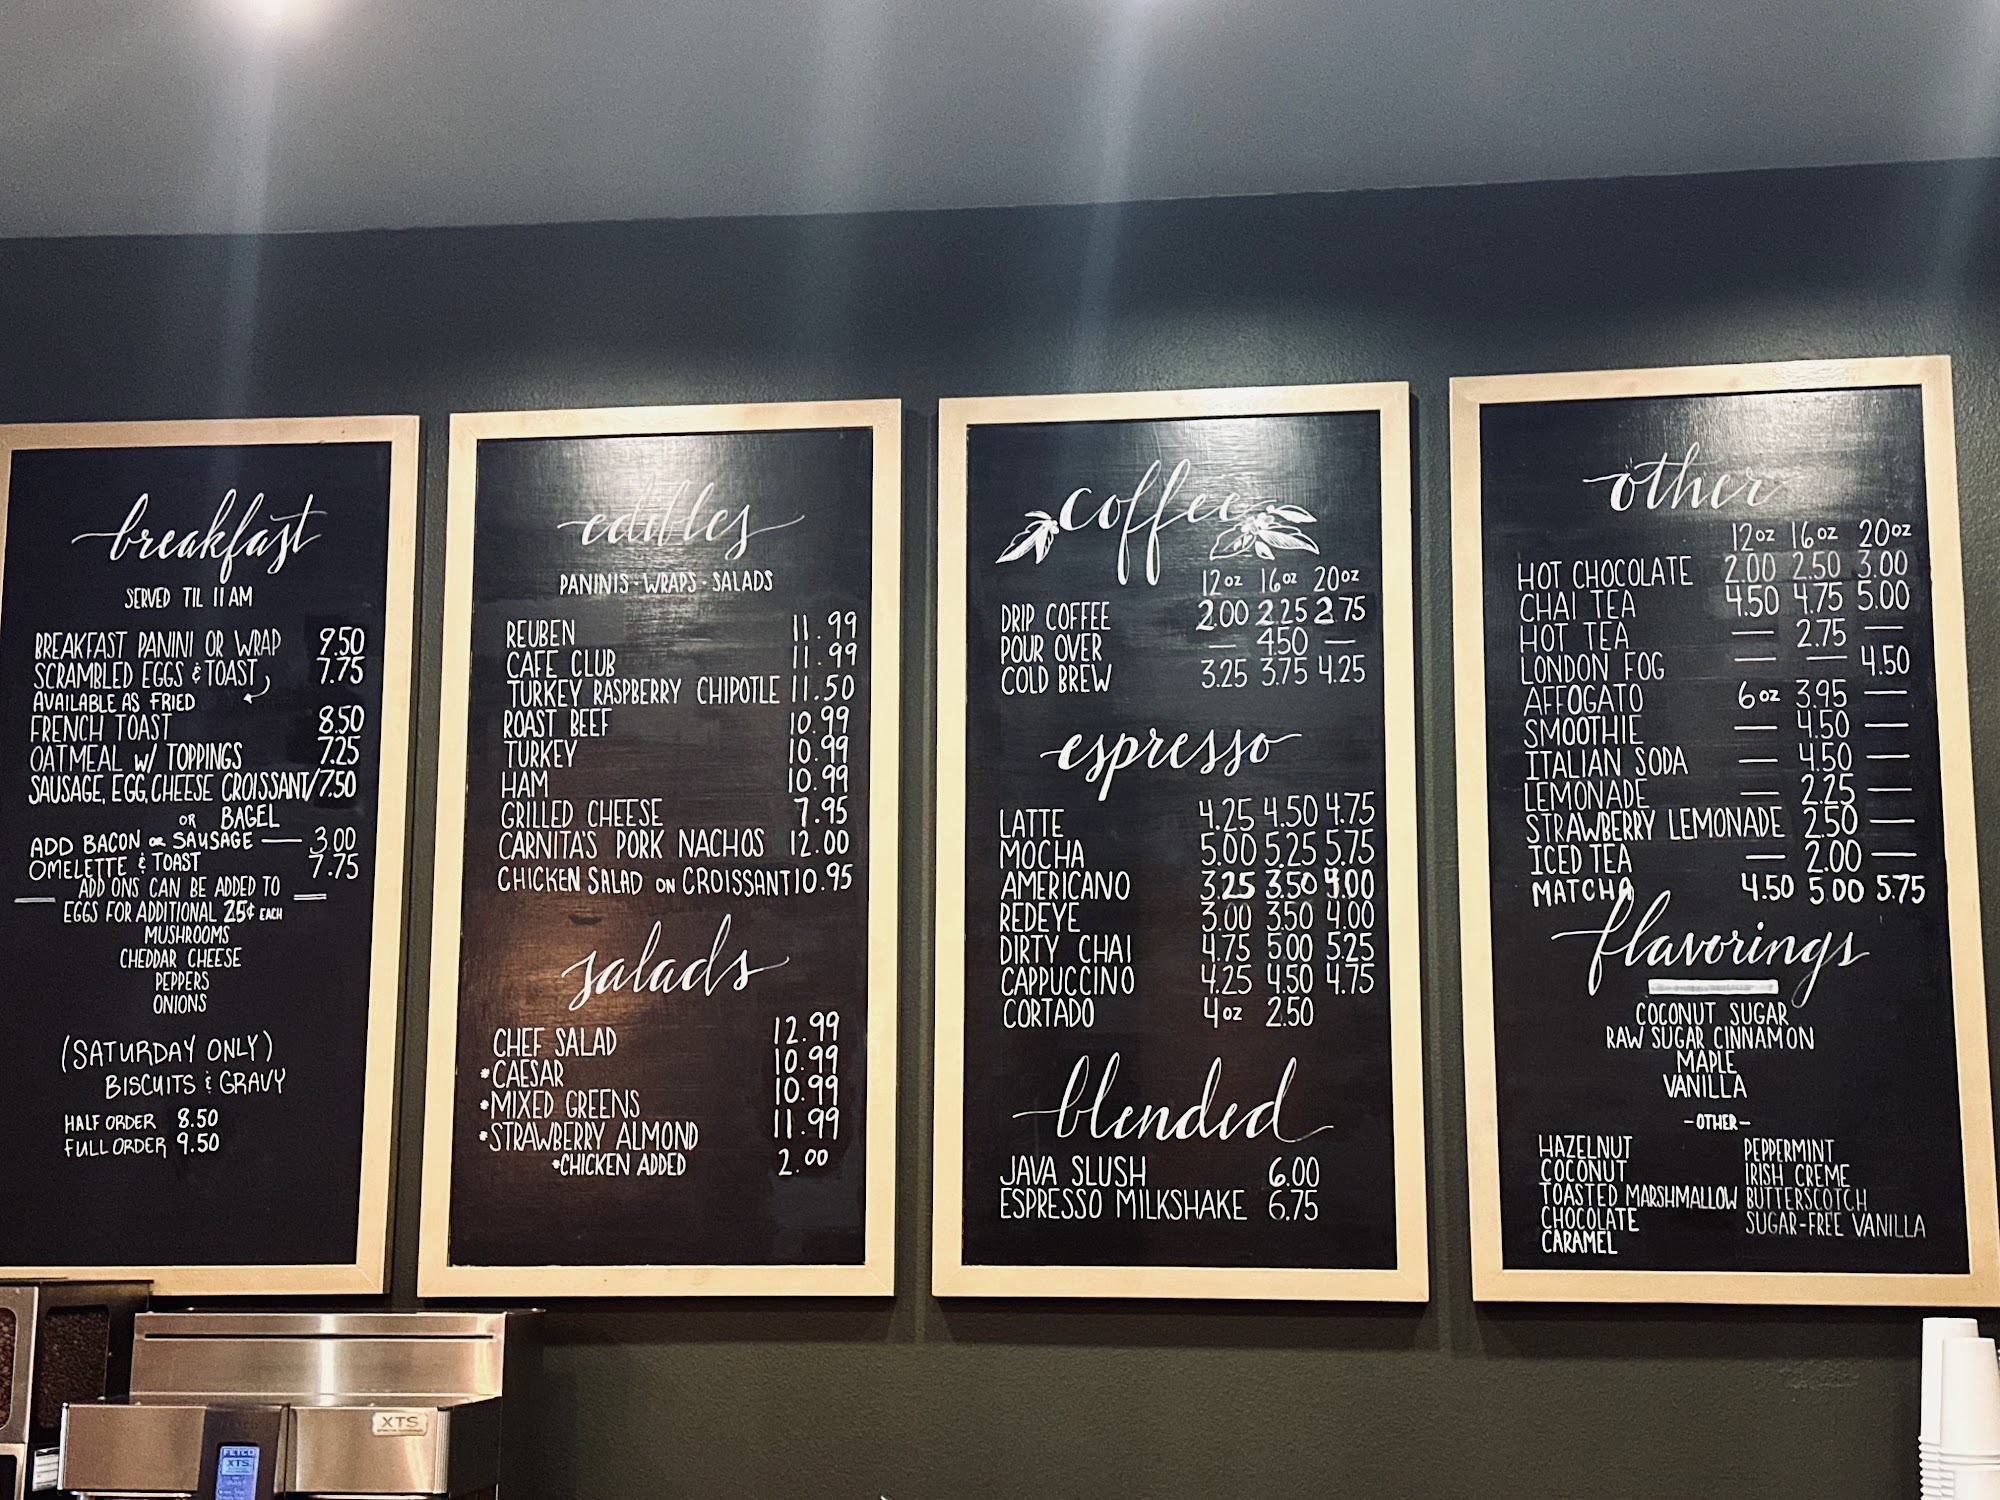 breakfast
SERVED TIL 11 AM
BREAKFAST PANINI OR WRAP 9.50
SCRAMBLED EGGS & TOAST 7.75
AVAILABLE AS FRIED
FRENCH TOAST 8.50
OATMEAL W/ TOPPINGS 7.25
SAUSAGE, EGG, CHEESE CROISSANT/ 7.50
OR BAGEL
ADD BACON OR SAUSAGE — 3.00
OMELETTE & TOAST 7.75
ADD ONS CAN BE ADDED TO
EGGS FOR ADDITIONAL 25¢ EACH
MUSHROOMS
CHEDDAR CHEESE
PEPPERS
ONIONS
(SATURDAY ONLY)
BISCUITS & GRAVY
HALF ORDER 8.50
FULL ORDER 9.50
edibles
PANINIS · WRAPS · SALADS
REUBEN 11.99
CAFE CLUB 11.99
TURKEY RASPBERRY CHIPOTLE 11.50
ROAST BEEF 10.99
TURKEY 10.99
HAM 10.99
GRILLED CHEESE 7.95
CARNITA'S PORK NACHOS 12.00
CHICKEN SALAD ON CROISSANT 10.95
salads
CHEF SALAD 12.99
*CAESAR 10.99
*MIXED GREENS 10.99
*STRAWBERRY ALMOND 11.99
*CHICKEN ADDED 2.00
coffee
12oz 16oz 20oz
DRIP COFFEE 2.00 2.25 2.75
POUR OVER — 4.50 —
COLD BREW 3.25 3.75 4.25
espresso
LATTE 4.25 4.50 4.75
MOCHA 5.00 5.25 5.75
AMERICANO 3.25 3.50 4.00
REDEYE 3.00 3.50 4.00
DIRTY CHAI 4.75 5.00 5.25
CAPPUCCINO 4.25 4.50 4.75
CORTADO 4oz 2.50
blended
JAVA SLUSH 6.00
ESPRESSO MILKSHAKE 6.75
other
12oz 16oz 20oz
HOT CHOCOLATE 2.00 2.50 3.00
CHAI TEA 4.50 4.75 5.00
HOT TEA — 2.75 —
LONDON FOG — — 4.50
AFFOGATO 6oz 3.95 —
SMOOTHIE — 4.50 —
ITALIAN SODA — 4.50 —
LEMONADE — 2.25 —
STRAWBERRY LEMONADE 2.50 —
ICED TEA — 2.00 —
MATCHA 4.50 5.00 5.75
flavorings
COCONUT SUGAR
RAW SUGAR CINNAMON
MAPLE
VANILLA
-OTHER-
HAZELNUT PEPPERMINT
COCONUT IRISH CREME
TOASTED MARSHMALLOW BUTTERSCOTCH
CHOCOLATE SUGAR-FREE VANILLA
CARAMEL
XTS
FETCO
XTS